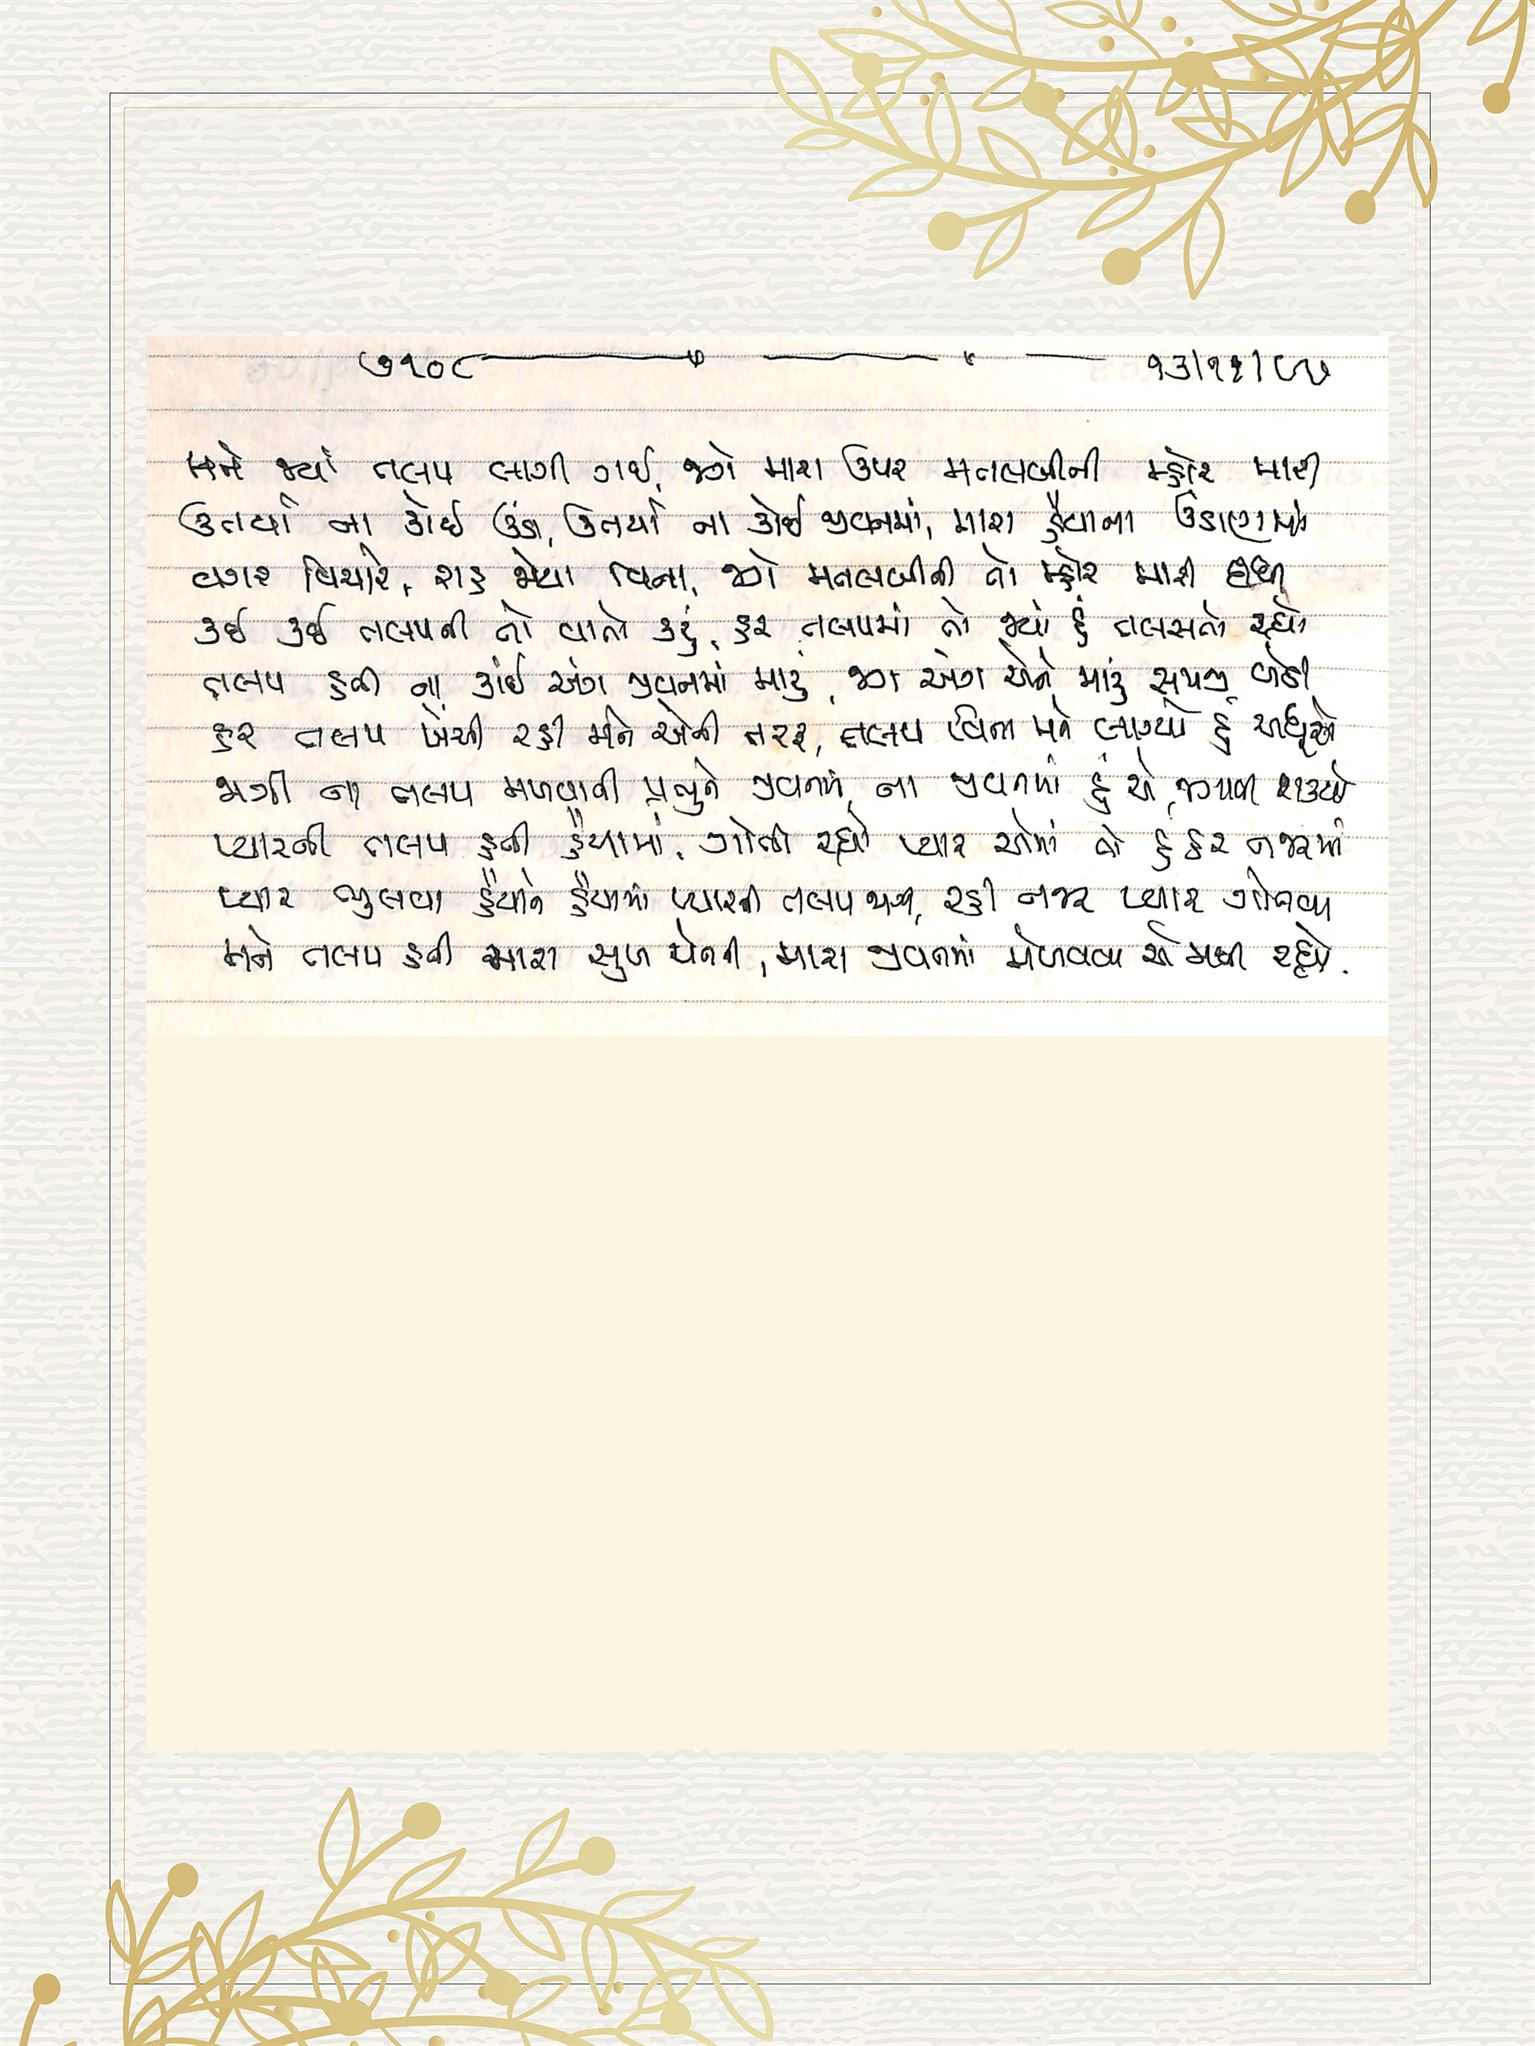 ૭૧૦૮ ૧૩/૧૧/૯૭
મને જ્યાં તલપ લાગી ગઈ, જગે મારા ઉપર મતલબીની મ્હોર મારી
ઉતર્યા ના કોઈ ઉંડા, ઉતર્યા ના કોઈ જીવનમાં, મારા હૈયાના ઉંડાણમાં
વગર વિચારે, રાહ જોયા વિના, જગે મતલબીની તો મ્હોર મારી દીધી
કઈ કઈ તલપની તો વાતો કહું, હર તલપમાં તો જ્યાં હું તલસતો રહ્યો
તલપ હતી ના કાંઈ અંગ જીવનમાં મારું, જગ અંગ એને મારું સમજી બેઠી
હર તલપ ખેંચી રહી મને એની તરફ, તલપ વિના મને લાગ્યો હું અધૂરો
જાગી ના તલપ મળવાની પ્રભુને જીવનમાં, ના જીવનમાં હું એ જગાવી શક્યો
પ્યારની તલપ હતી હૈયામાં, ગોતી રહ્યો પ્યાર એમાં તો હું હર નજરમાં
પ્યાર ભુલવા હૈયાને હૈયામાં પ્યારની તલપ જાગી, રહી નજર પ્યાર ગોતવા
મને તલપ હતી મારા સુખ ચેનની, મારા જીવનમાં મેળવવા એ મથી રહ્યો.